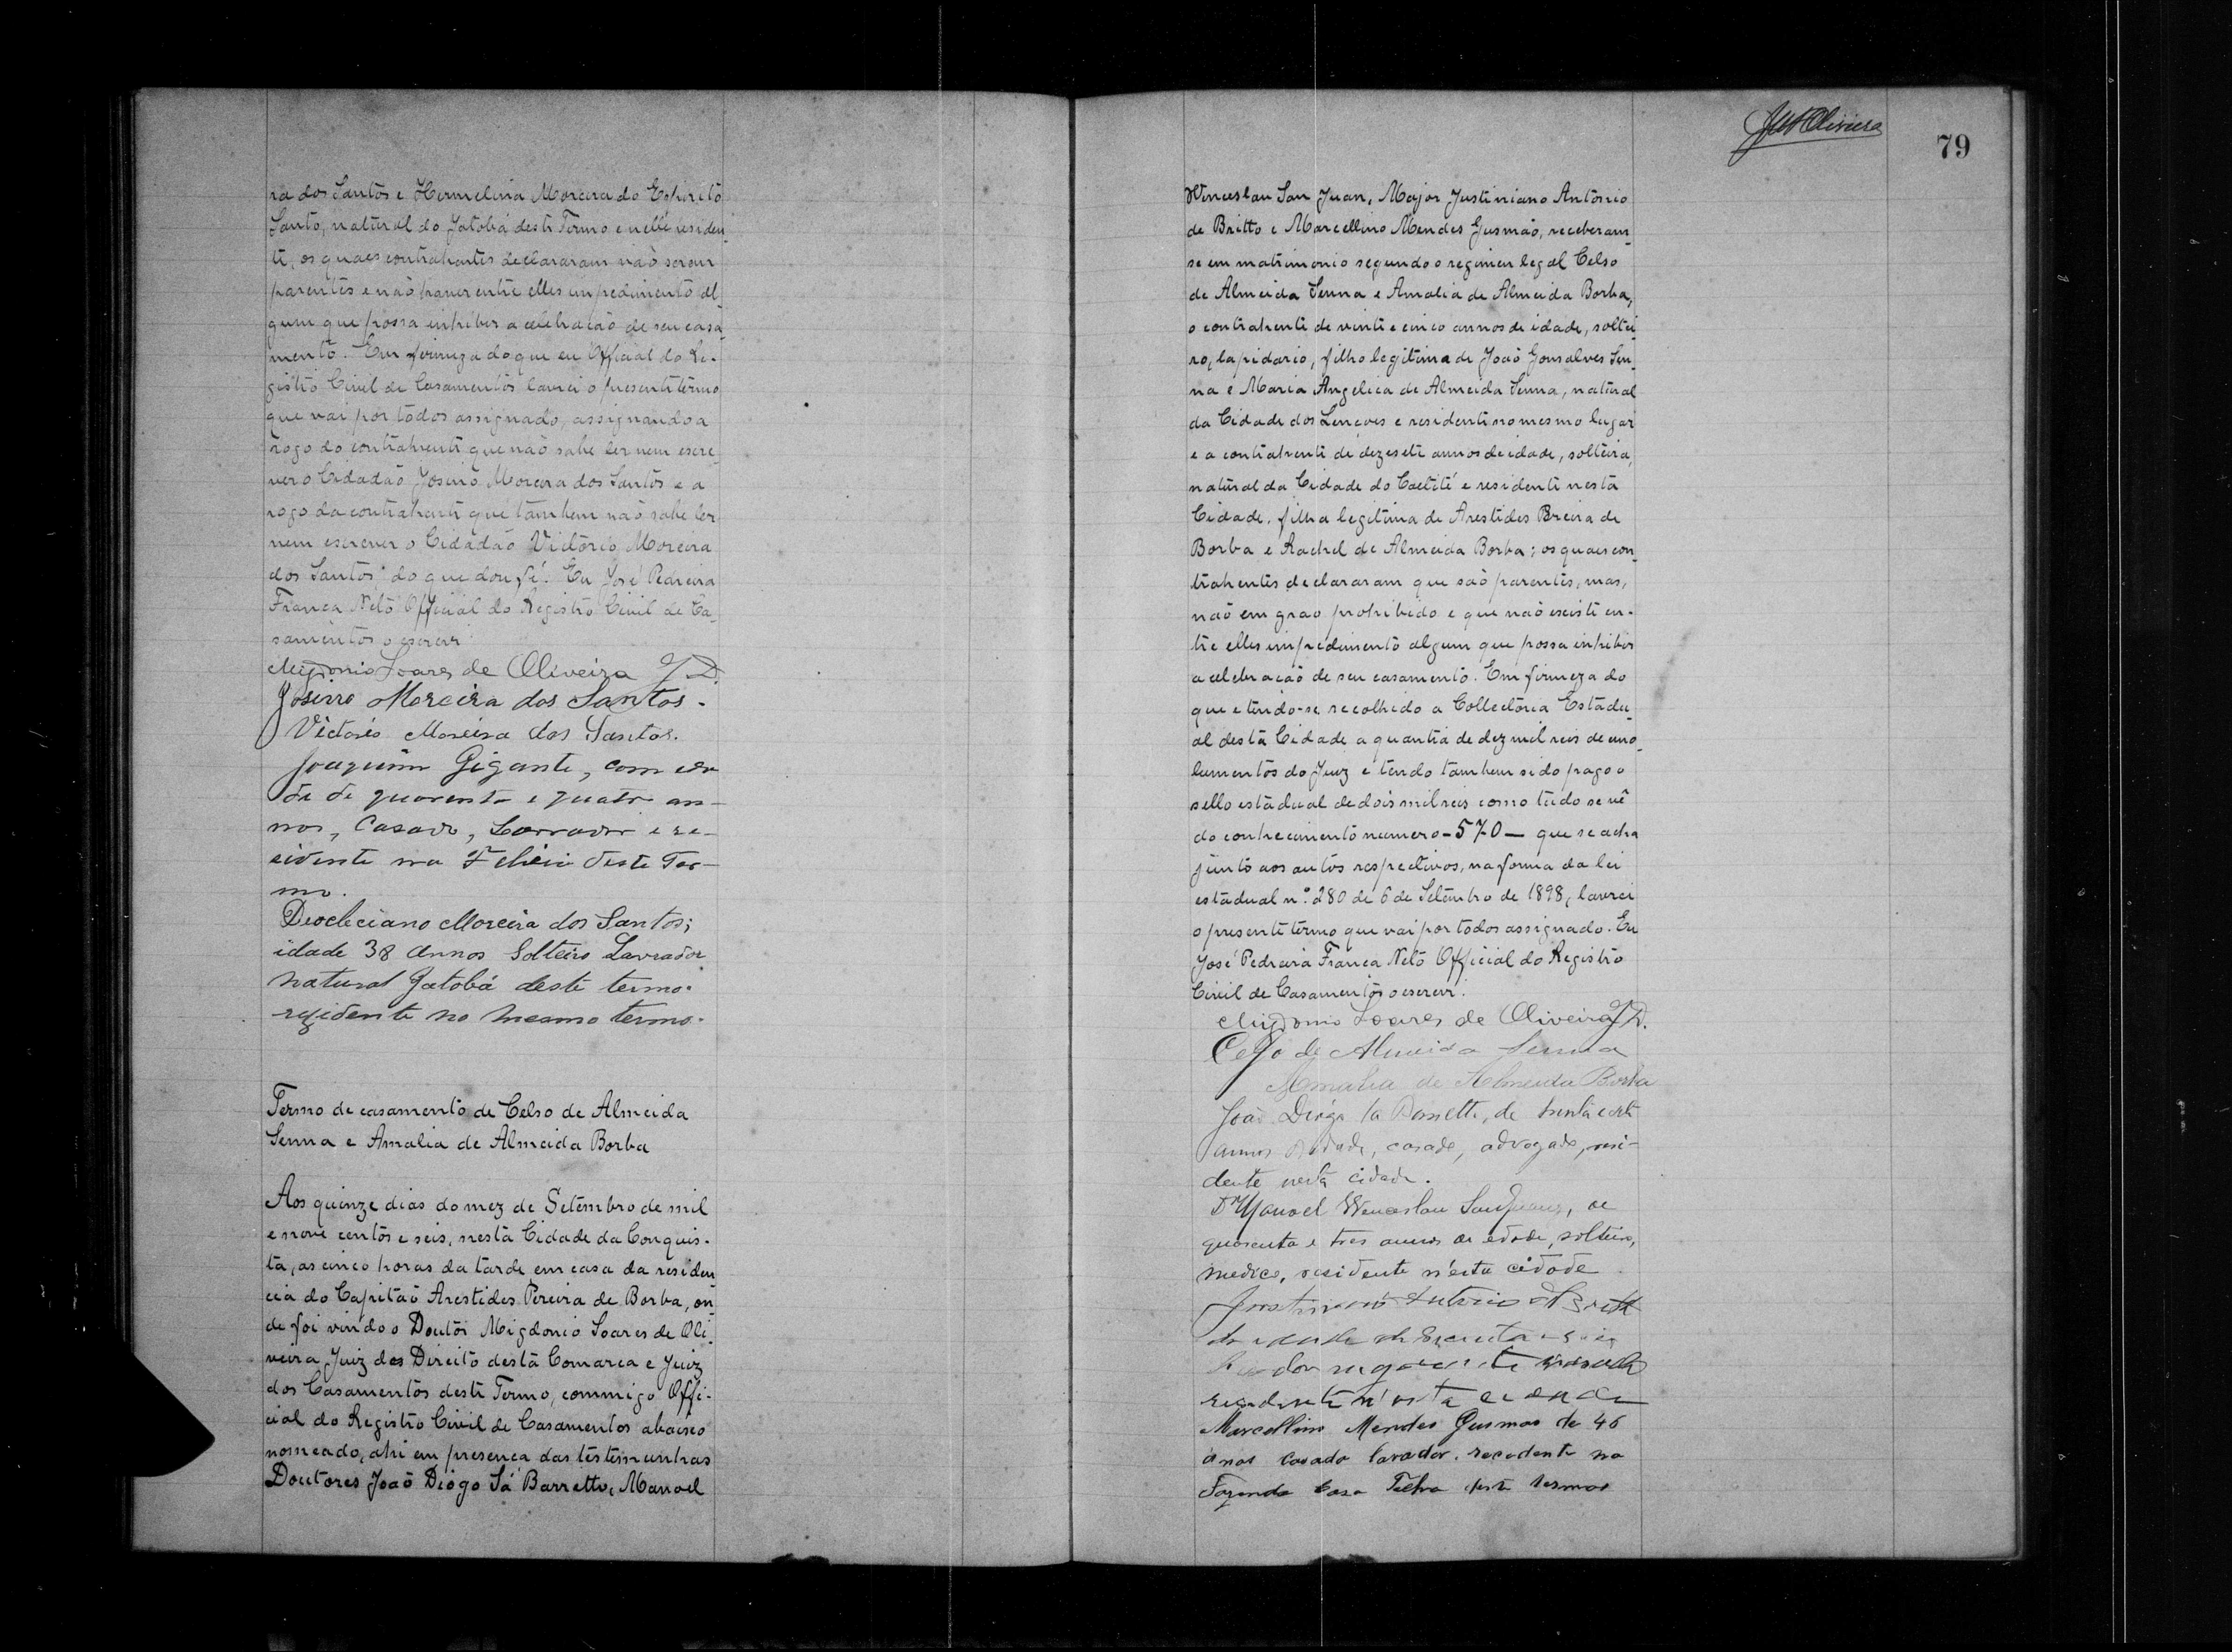 ra dos Santos e Hermelina Moreira do Espirito
Santo, natural do Jatobá deste Termo e nelle residen-
te, os quaes contrahentes declararam não serem
parentes e não haver entre elles impedimento al-
gum que possa inhibir a celebração de seu casa-
mento. Em firmeza do que eu Official do Re-
gistro Civil de Casamentos lavrei o presente termo
que vai por todos assignado, assignando a
rogo do contrahente que não sabe ler nem escre-
ver o Cidadão Josino Moreira dos Santos e a
rogo da contrahente que tambem não sabe ler
nem escrever o Cidadão Victorio Moreira
dos Santos do que dou fé. Eu José Pedreira
França Neto Official do Registro Civil de Ca-
samentos o escrevi.
Migdonio Soares de Oliveira J. D.
Josino Moreira dos Santos.
Victorio Moreira dos Santos.
Joaquim Gigante, com eda
de de quarenta e quatro an-
nos, Casado, Lavrador e re-
sidente na deste Ter-
mo.
Deocleciano Moreira dos Santos;
idade 38 annos Solteiro Lavrador
natural Jatobá deste termo.
rezidente no mesmo termo.
Termo de casamento de Celso de Almeida
Senna e Amalia de Almeida Borba
Aos quinze dias do mez de Setembro de mil
e nove centos e seis, nesta Cidade da Conquis-
ta, as cinco horas da tarde em casa da residen
cia do Capitão Arestides Pereira de Borba, on-
de foi vindo o Doutor Migdonio Soares de Oli-
veira Juiz des Direito desta Comarca e Juiz
dos Casamentos deste Termo, commigo Offi-
cial do Registro Civil de Casamentos abaixo
nomeado, ahi em presença das testemunhas
Doutores João Diogo Sá Barretto, Manoel
JMSOliveira
79
Winceslau San Juan, Major Justiniano Antonio
de Britto e Marcellino Mendes Gusmão, receberam-
se em matrimonio segundo o regimen legal Celso
de Almeida Senna e Amalia de Almeida Borba,
o contrahente de vinte e cinco annos de idade, soltei
ro, lapidario, filho legitimo de João Gonsalves Sen-
na e Maria Angelica de Almeida Senna, natural
da Cidade dos Lençoes e residente no mesmo lugar
e a contrahente de dezesete annos de idade, solteira,
natural da Cidade do Caetité e residente nesta
Cidade, filha legitima de Arestides Pereira de
Borba e Rachel de Almeida Borba; os quaes con
trahentes declararam que são parentes, mas,
não em grao prohibido e que não existe en-
tre elles impedimento algum que possa inhibir
a celebração de seu casamento. Em firmeza do
que e tendo-se recolhido a Collectoria Estadu-
al desta Cidade a quantia de dez mil reis de emo-
lumentos do Juiz e tendo tambem sido pago o
sello estadual de dois mil reis como tudo se vê
do conhecimento numero -570- que se acha
junto aos autos respectivos, na forma da lei
estadual n.º 280 de 6 de Setembro de 1898, lavrei
o presente termo que vai por todos assignado. Eu
José Pedreira França Neto Official do Registro
Civil de Casamentos o escrevi.
Migdonio Soares de Oliveira J. D.
Celso de Almeida Senna
Amalia de Almeida Borba
João Diogo Sá Barretto, de trinta e sete
annos de idade, casado, advogado, resi-
dente nesta cidade.
Dr Manoel Wenceslau SanJuan, de
quarenta e tres annos de edade, solteiro,
medico, residente n'esta cidade
Justiniano Antonio de Britto
de edade de
negociante casado
residente n'esta cidade
Marcellino Mendes Gusmao de 46
anos casado lavrador. rezedente na
Fazenda Casa Telha deste termo